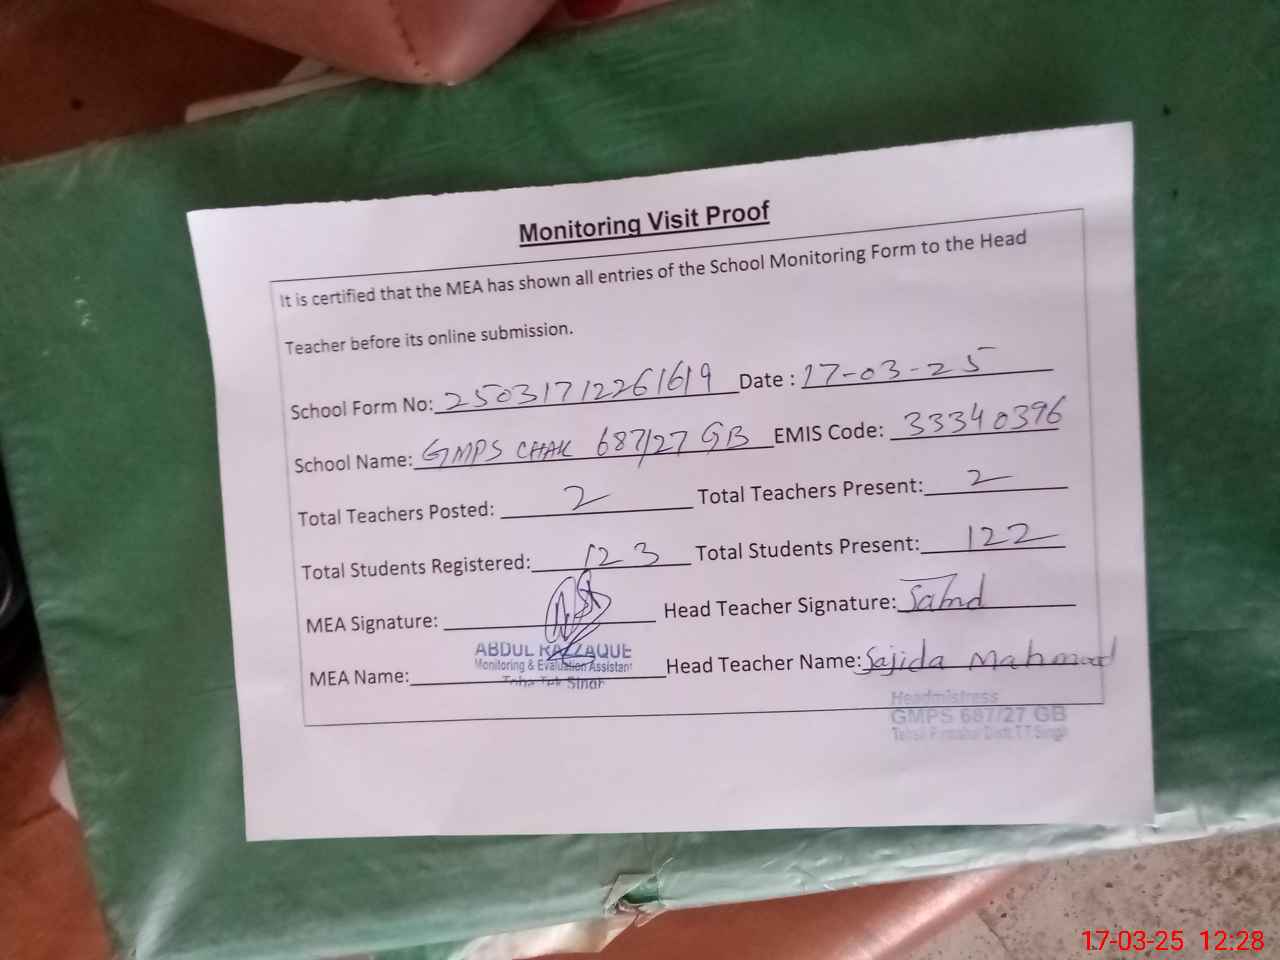 Monitoring Visit Proof
It is certified that the MEA has shown all entries of the School Monitoring Form to the Head
Teacher before its online submission.
School Form No: 25031712261619 Date : 17-03-25
School Name: GMPS CHAK 687/27 GB EMIS Code: 33340396
Total Teachers Posted: 2 Total Teachers Present: 2
Total Students Registered: 123 Total Students Present: 122
MEA Signature: Head Teacher Signature:
ABDUL RAZZAQUE
Monitoring & Evaluation Assistant
MEA Name: Head Teacher Name: Sajida Mahmood
Toba Tek Singh
Headmistress
GMPS 687/27 GB
Distt T.T.Singh
17-03-25 12:28